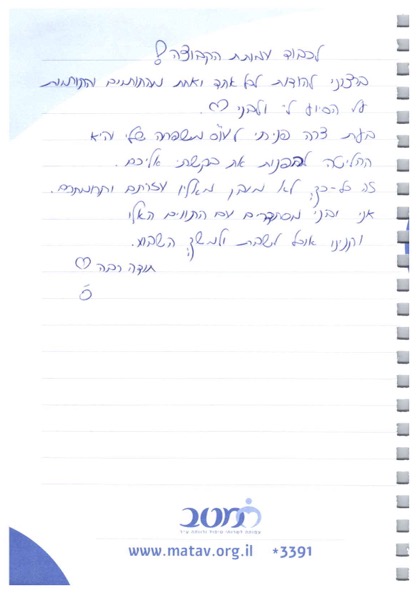 לכבוד עמותת הקבוצה!
ברצוני להודות לכל אחד ואחת מהתורמים
על הסיוע לי ולבני ♡.
בעת צרה פניתי לעו"ס משפחה שלי והיא
החליטה להפנות את בקשתי אליכם.
זה כל-כך לא מובן מאליו עזרתם ותרומתם.
אני ובני מסתדרים עם התווים האלו
וקנינו אוכל לשבת ולמשך השבוע.
תודה רבה ♡
מטב
www.matav.org.il *3391